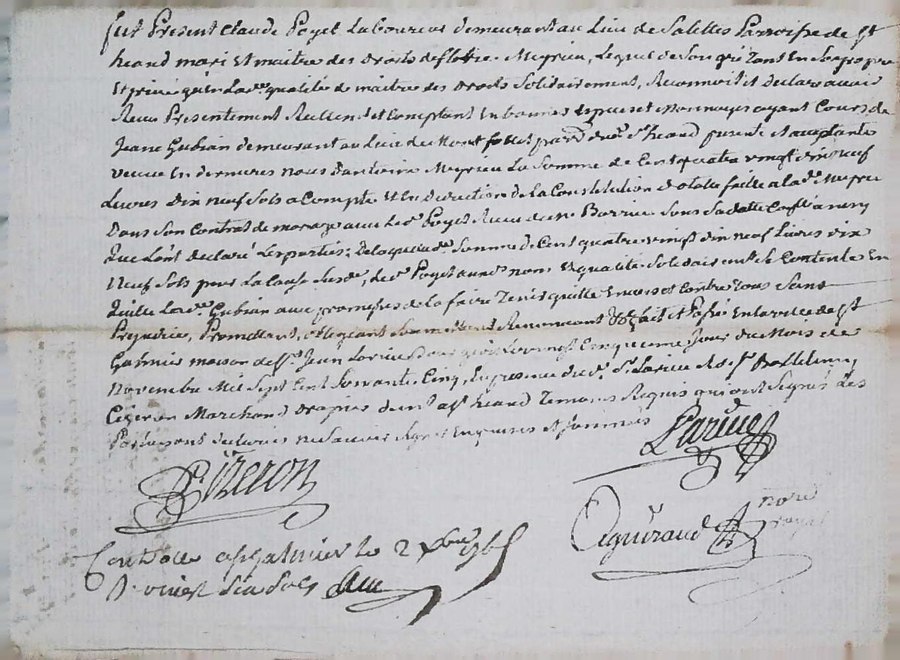 fut Present Claude Poyet Laboureur demeurant au Lieu de Salettes Parroisse de St
heand mari et maitre des droits de Meyrieu, Lequel de son gré tant en son propre
et privé qu'en lad. qualité de maitre des droits Solidairement, Reconnoit et declare avoir
Receu Presentement Reellement et Comptant en bonnes especes et monnoyes ayant Cours de
Jeane Gubian demeurant au Lieu de parr. dud. St heand presente et acceptante
veuve en dernieres nous d'antoine Meyrieu La Somme de Cent quatre vingt dix neuf
Livres Dix neuf Sols a Compte et en de la Constitution dotale faitte a lad. Meyrieu
Dans Son Contrat de mariage avec Led. Poyet Receu de me Sous Sa datte
que L'ont declaré Les parties, De laquelle de. Somme de Cent quatre vingt dix neuf Livres dix
Neuf Sols pour La Cause susd., led. Poyet auxd. noms et qualité Solidairemt. Se Contente en
quitte La de. Gubian avec promesse de la faire Tenir quitte envers et Contre tous Sans
Prejudice, Promettant, obligeant Soumettant Renonceant &c. fait et Passé en la ville de St
Galmier maison de Sr. Jean Larieu vingt Cinquieme Jour du Mois de
Novembre Mil Sept Cent Soixante Cinq, en presence dud. Sr. Larieu et de Sr.
Cizeron Marchand Drapier dud. St heand Temoins Requis qui ont Signés Les
Parties ont declarées ne Scavoir Signer Enquises et Sommées
Larieu
Cizeron
nore
Controllé a St galmier le 2 xbre 1765
Sols